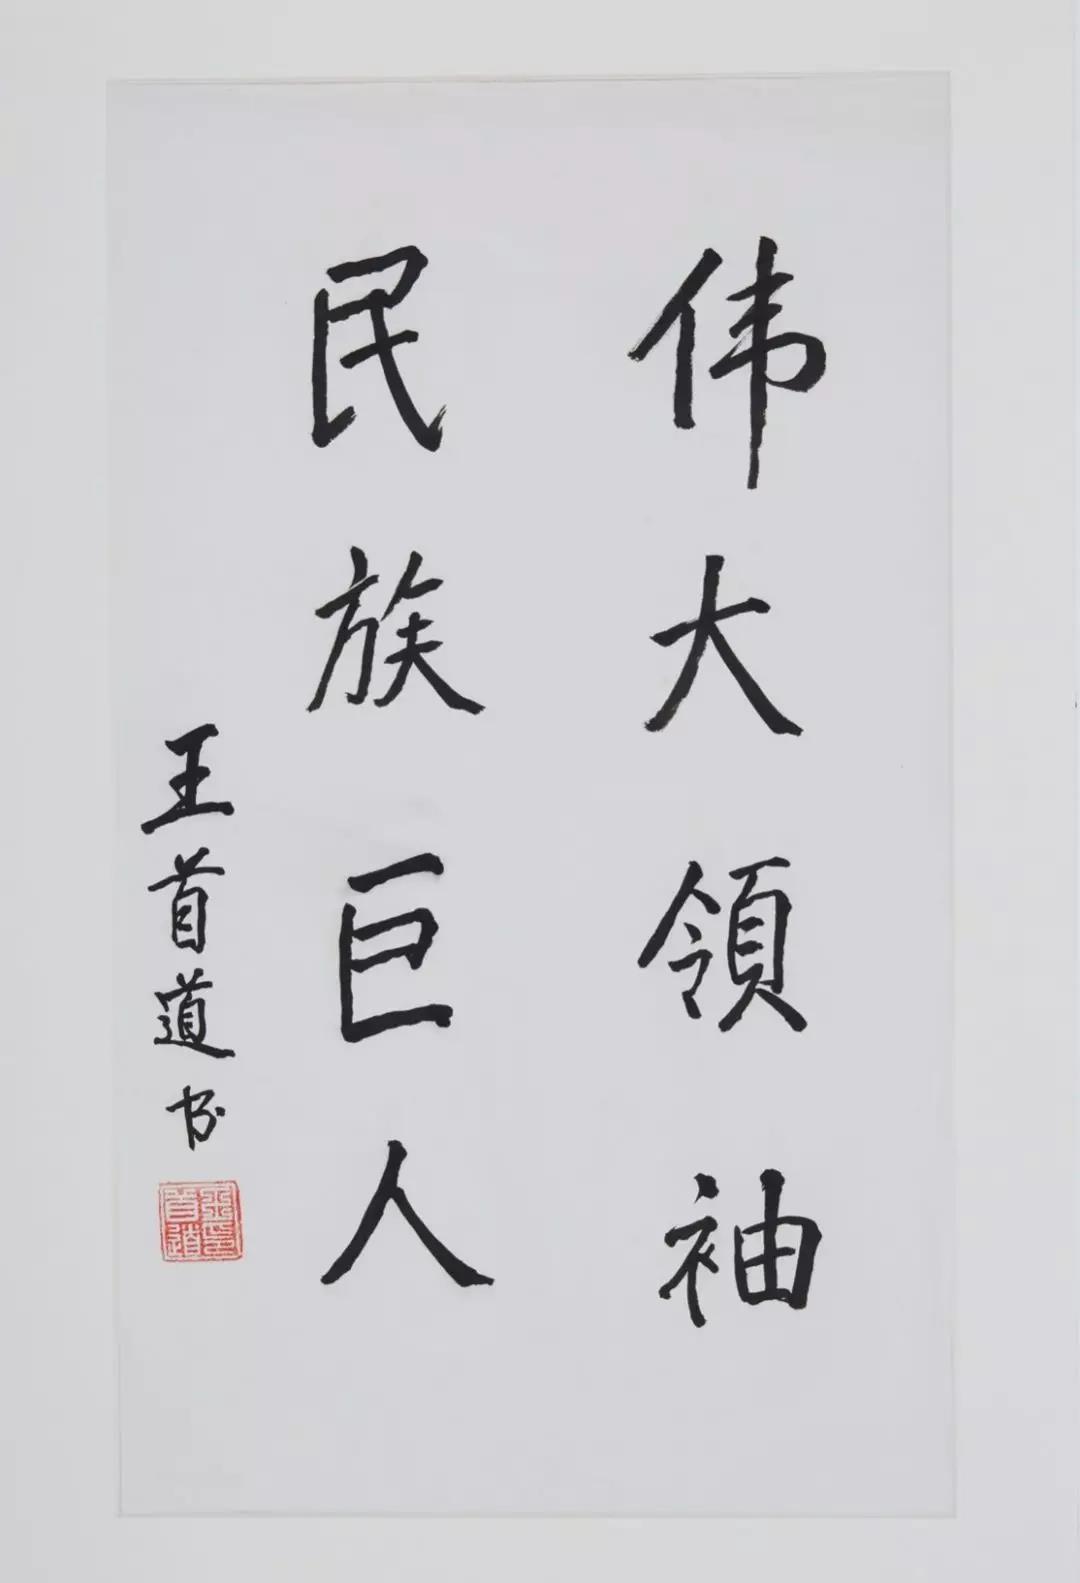 伟大領袖
民族巨人
王首道书